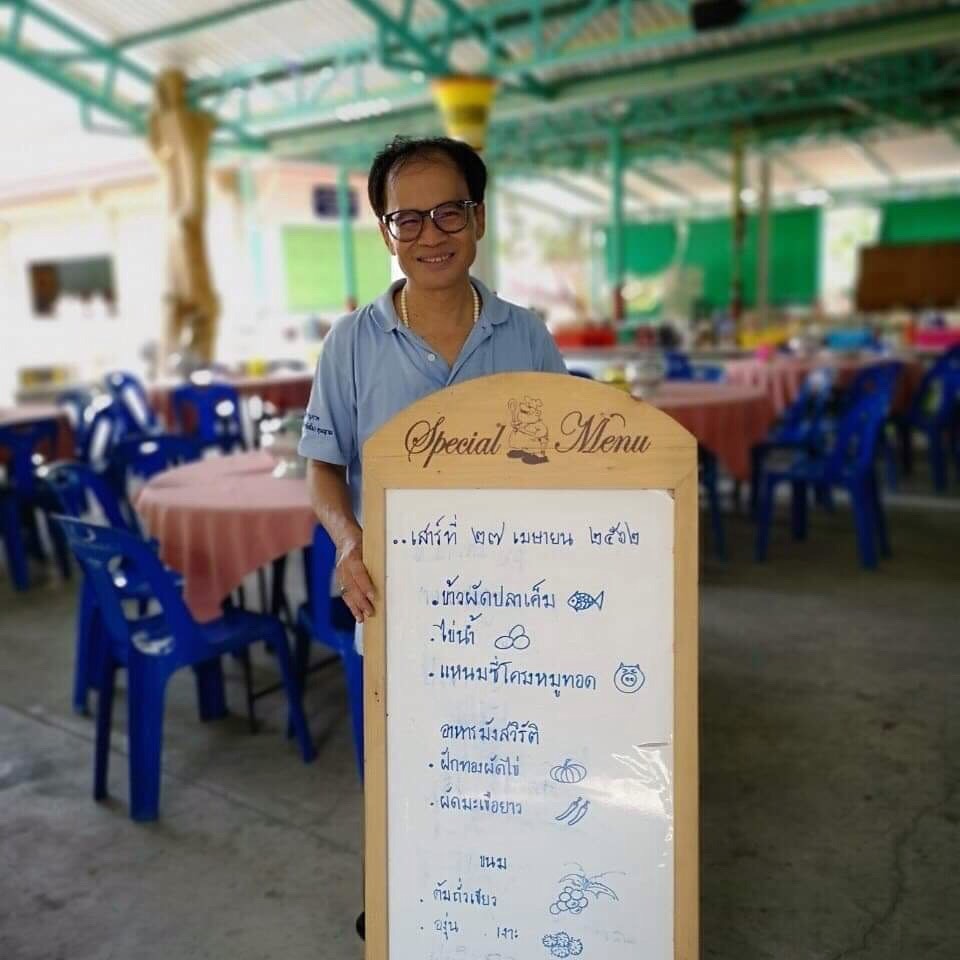 Special Menu
..เสาร์ที่ ๒๗ เมษายน ๒๕๖๒
.ข้าวผัดปลาเค็ม
.ไข่น้ำ
.แหนมซี่โครงหมูทอด
อาหารมังสวิรัติ
.ฝักทองผัดไข่
.ผัดมะเขือยาว
ขนม
.ต้มถั่วเขียว
.องุ่น เงาะ